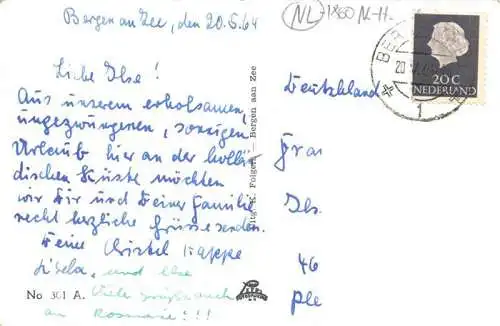 Bergen aan Zee, den 20.5.64
Liebe Ilse!
Aus unserem erholsamen,
ungezwungenen, sonnigen
Urlaub hier an der hollän
dischen Küste möchten
wir Dir und Deiner Familie
recht herzliche Grüsse senden.
Deine Christel Kappe
Gisela, und Ilse
Viele Grüße auch
an Rosmarie!!!
No 301 A.
Folger, Bergen aan Zee
NL 1860 M-H.
20 C
NEDERLAND
BER
20
1
Deutschland
Frau
Ils
46